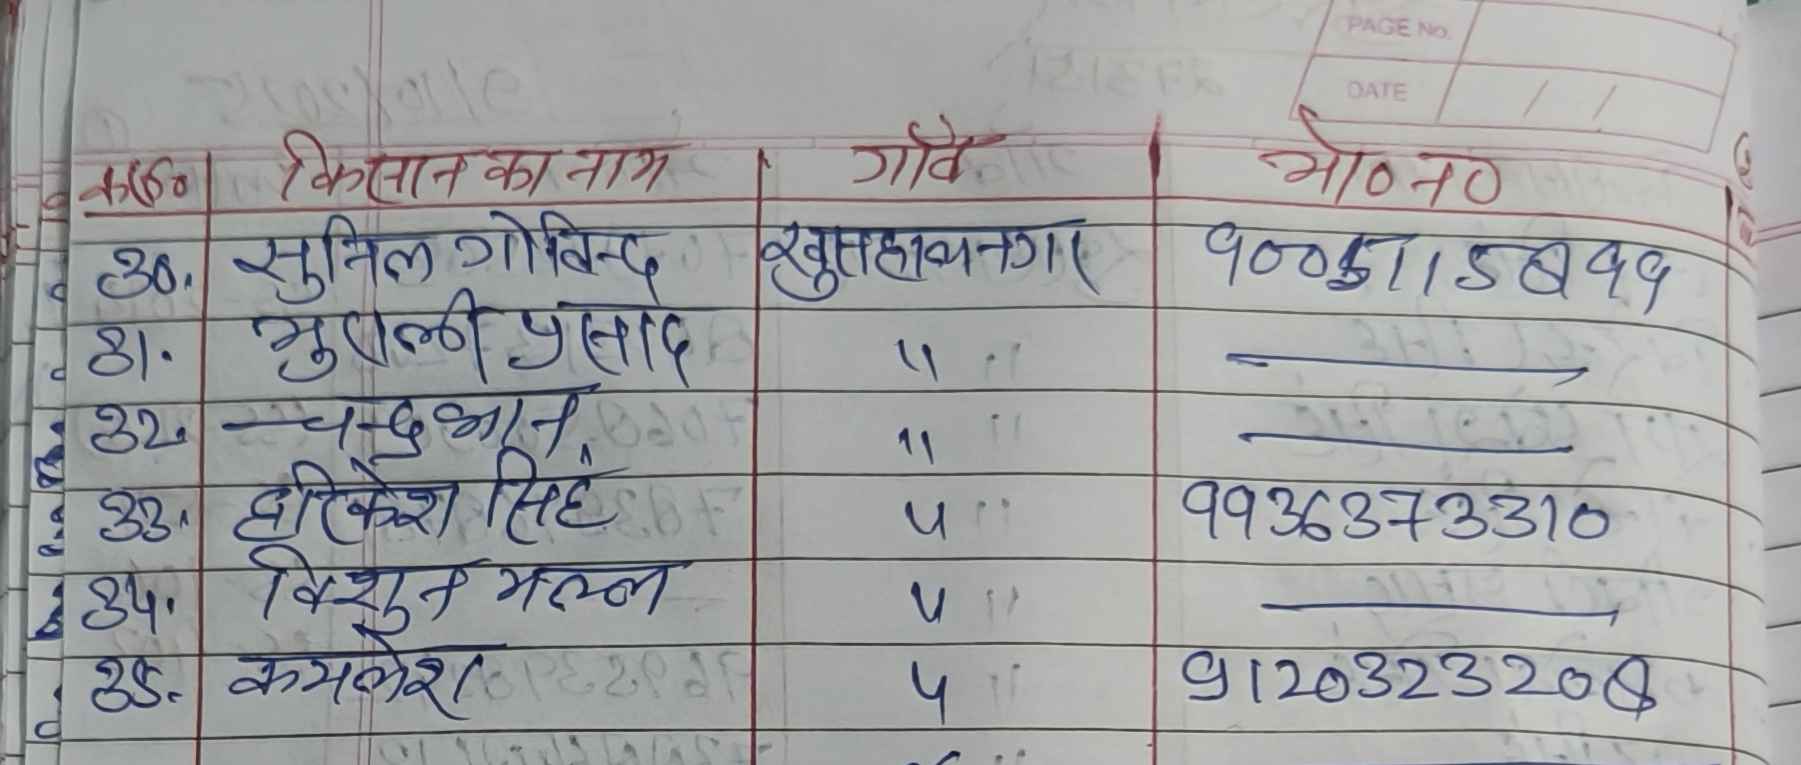 PAGE NO.
DATE / /
क्र०सं० किसान का नाम गाँव मो० न०
30. सुनिल गोविन्द खुसहालनगर
31. मुराली प्रसाद " ——
32. चन्द्रभान " ——
33. हरिकेश सिंह " 9936373310
34. विशुन मल्ल " ——
35. कमलेश " 9120323208